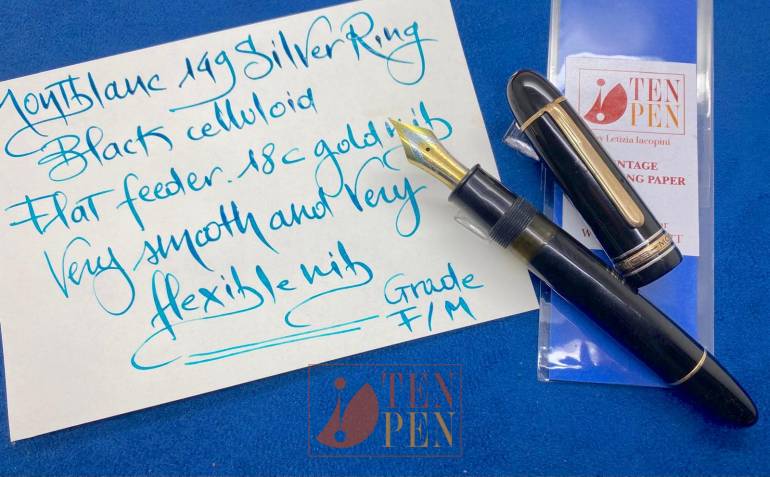 Montblanc 149 Silver Ring
Black celluloid
Flat feeder. 18c gold nib
Very smooth and very
flexible nib
Grade
F/M
TEN
PEN
by Letizia Iacopini
NTAGE
NG PAPER
TEN
PEN